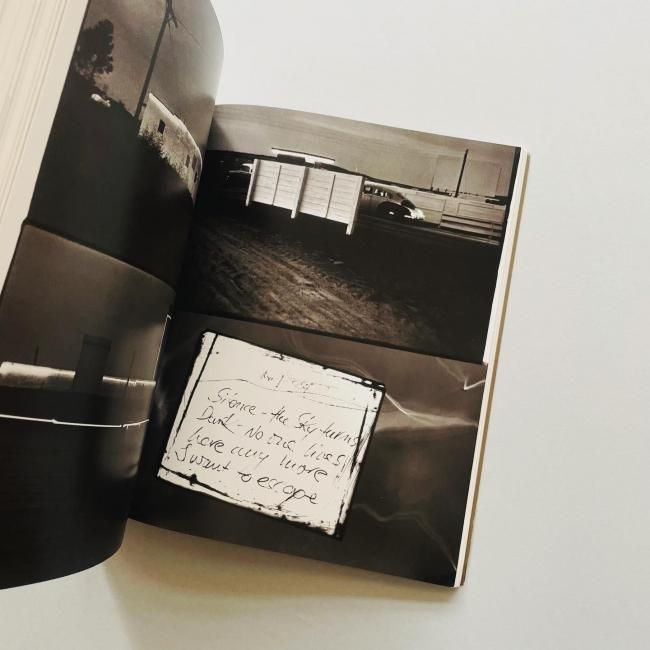 Silence – the Sky turns
Dark – No one lives
here any more
I want to escape